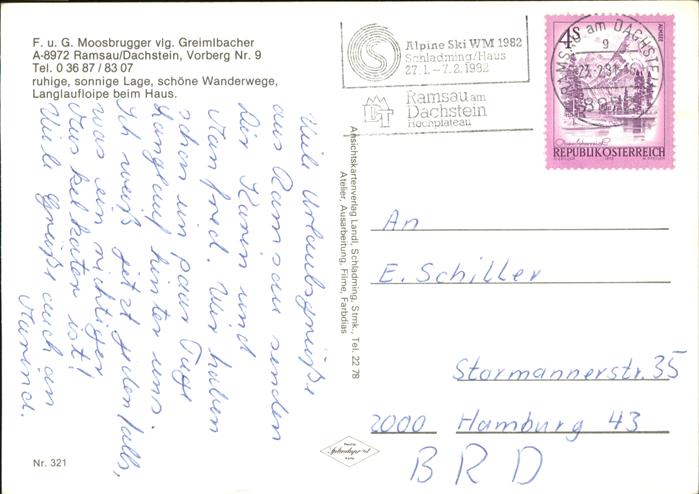 F. u. G. Moosbrugger vlg. Greimlbacher
A-8972 Ramsau/Dachstein, Vorberg Nr. 9
Tel. 0 36 87 / 83 07
ruhige, sonnige Lage, schöne Wanderwege,
Langlaufloipe beim Haus.
Viele Urlaubsgrüße
aus Ramsau senden
Dir Karin und
Manfred. Wir haben
schon ein paar Tage
Langlauf hinter uns.
Ich weiß jetzt jedenfalls,
was ein richtiger
Muskelkater ist!
Viele Grüße auch an
Nr. 321
Ansichtskartenverlag Landl, Schladming, Stmk., Tel. 22 78
Atelier, Ausarbeitung, Filme, Farbdias
Alpine Ski WM 1982
Schladming/Haus
27.1. - 7.2.1982
Ramsau am
Dachstein
Hochplateau
RAMSAU am DACHSTEIN
4S
ALMSEE
REPUBLIK ÖSTERREICH
An
E. Schiller
Stormannerstr. 35
2000 Hamburg 43
BRD